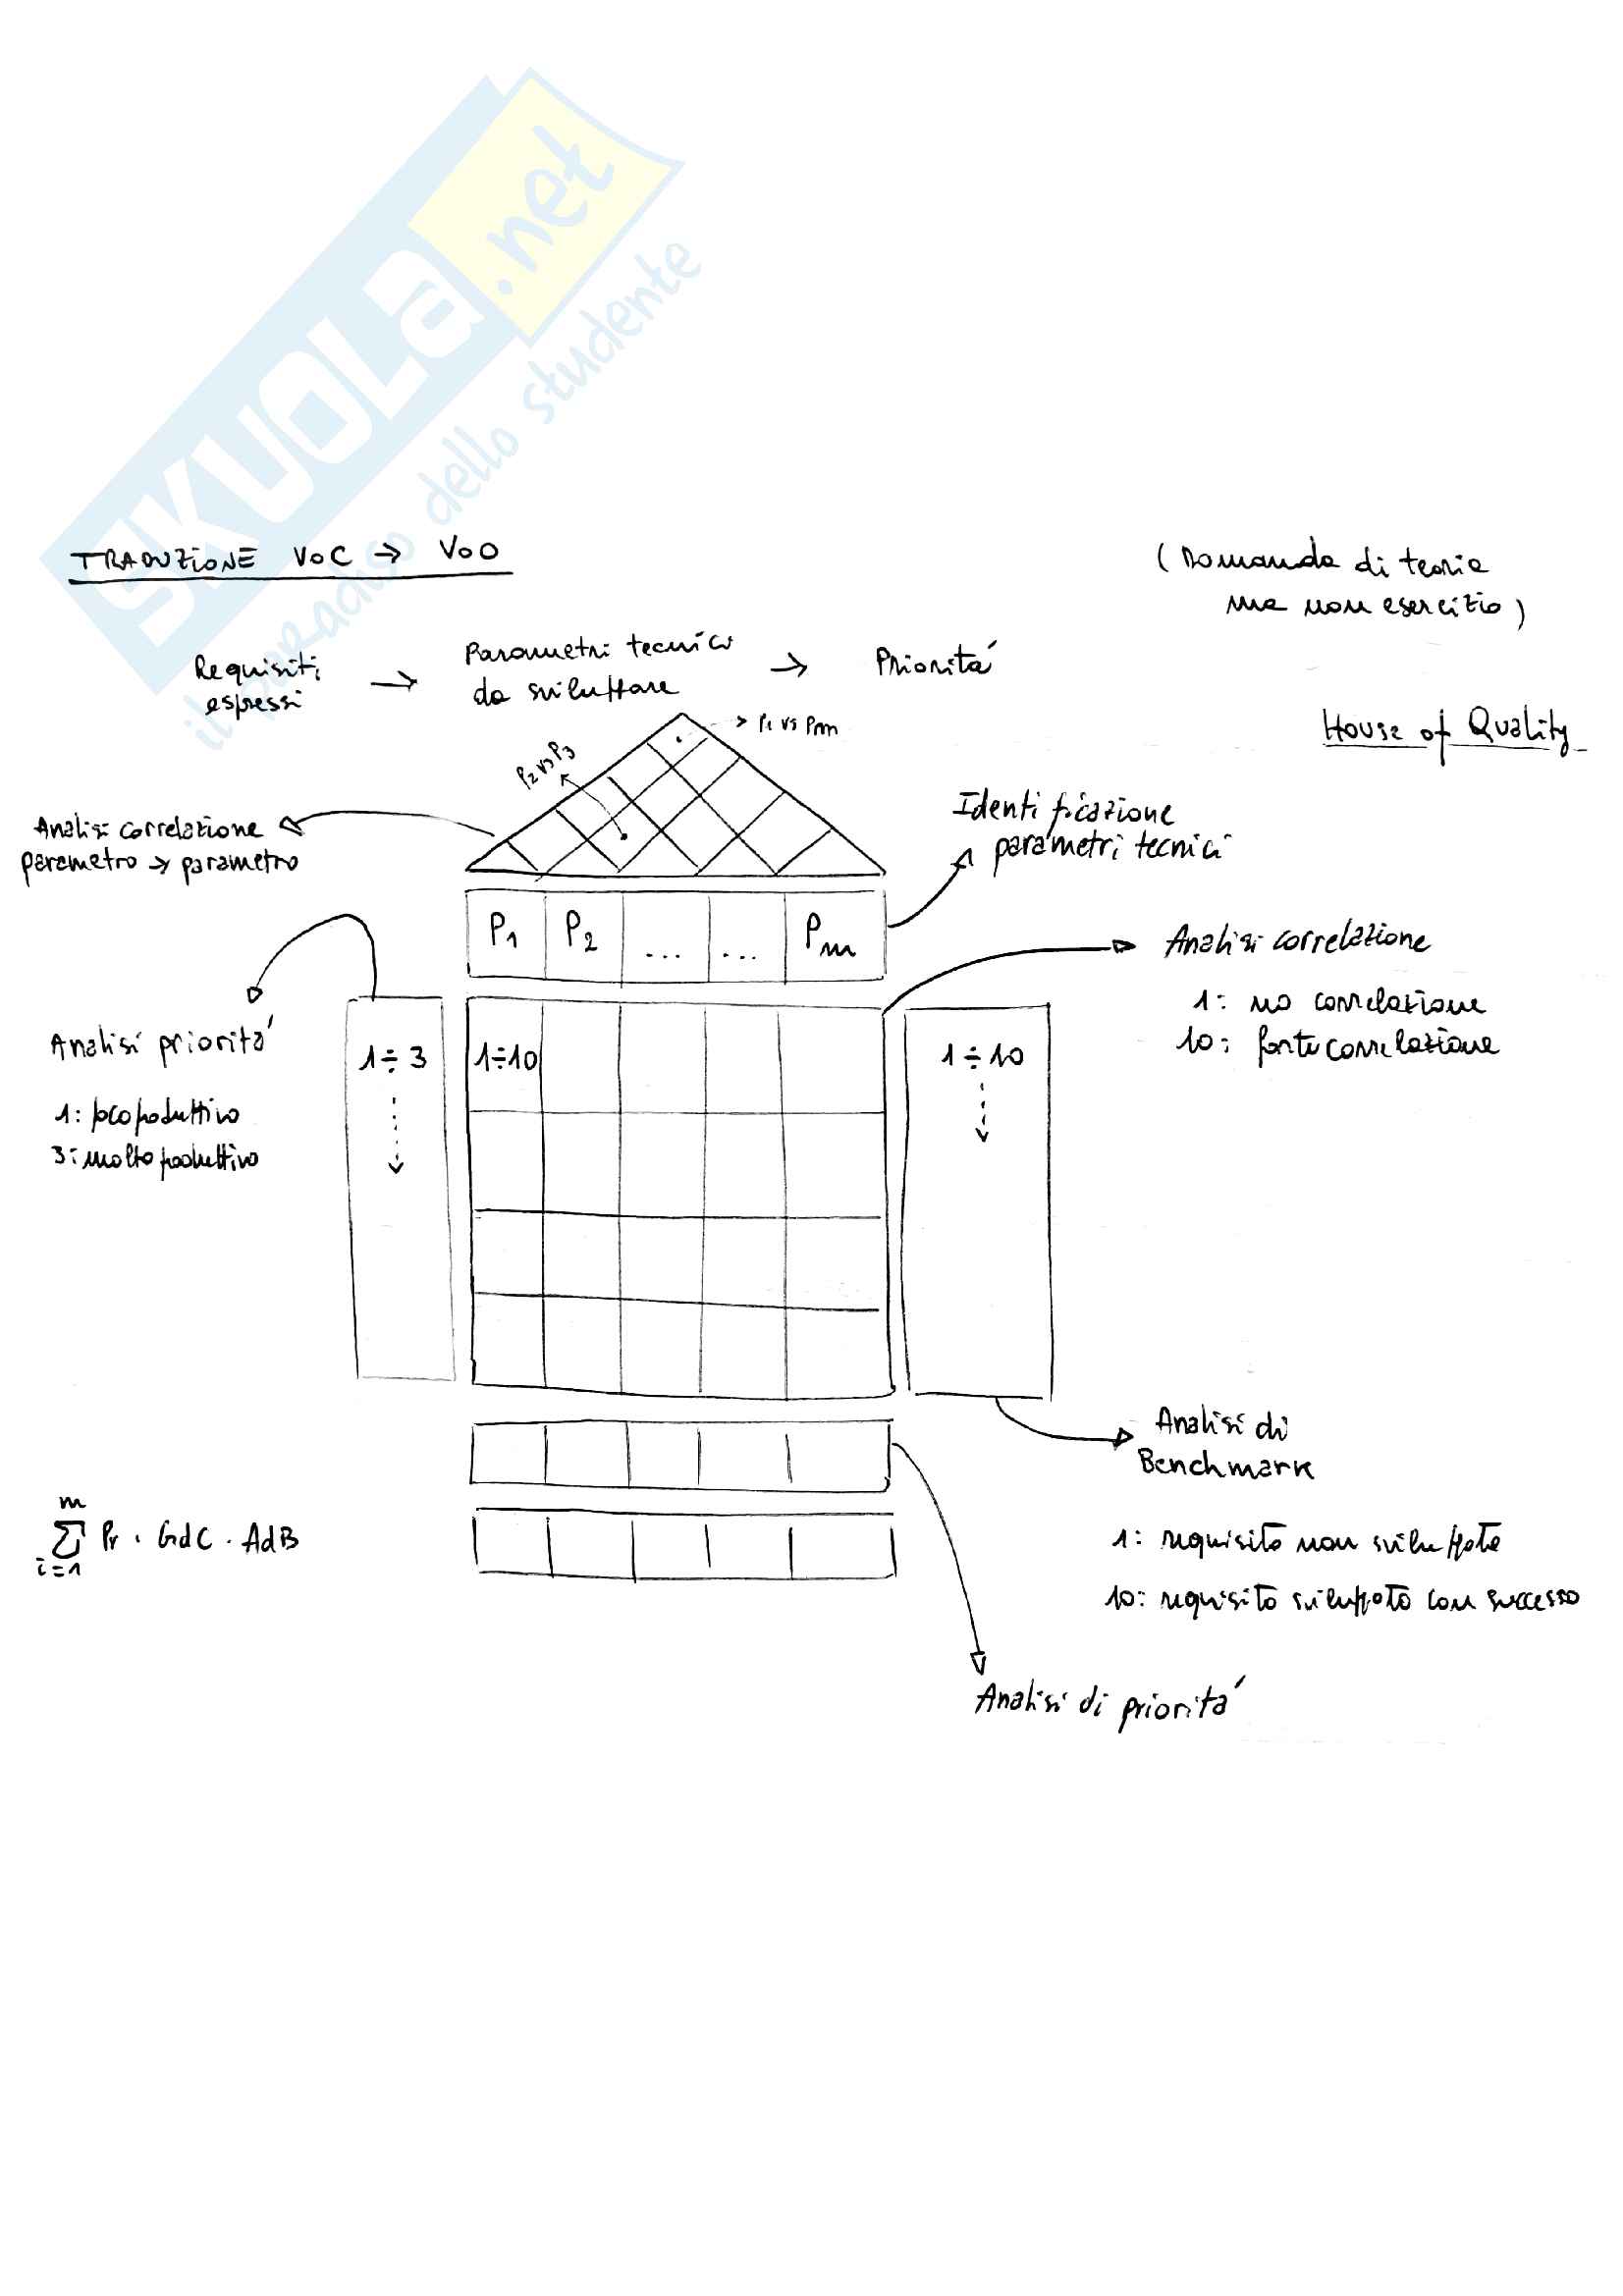 SKUOLA.net
il paradiso dello studente
TRADUZIONE VoC → VoO
(Domanda di teoria
ma non esercizio)
Requisiti
espressi
→
Parametri tecnici
da sviluppare
→
Priorità
House of Quality
P1 vs Pm
P2 vs P3
Analisi correlazione
parametro → parametro
Identificazione
parametri tecnici
P1 P2 ... ... Pm
Analisi correlazione
1: no correlazione
10: forte correlazione
Analisi priorità
1: poco produttivo
3: molto produttivo
1÷3
1÷10
1÷10
Analisi di
Benchmark
1: requisito non sviluppato
10: requisito sviluppato con successo
m
∑ Pr · GdC · AdB
i=1
Analisi di priorità